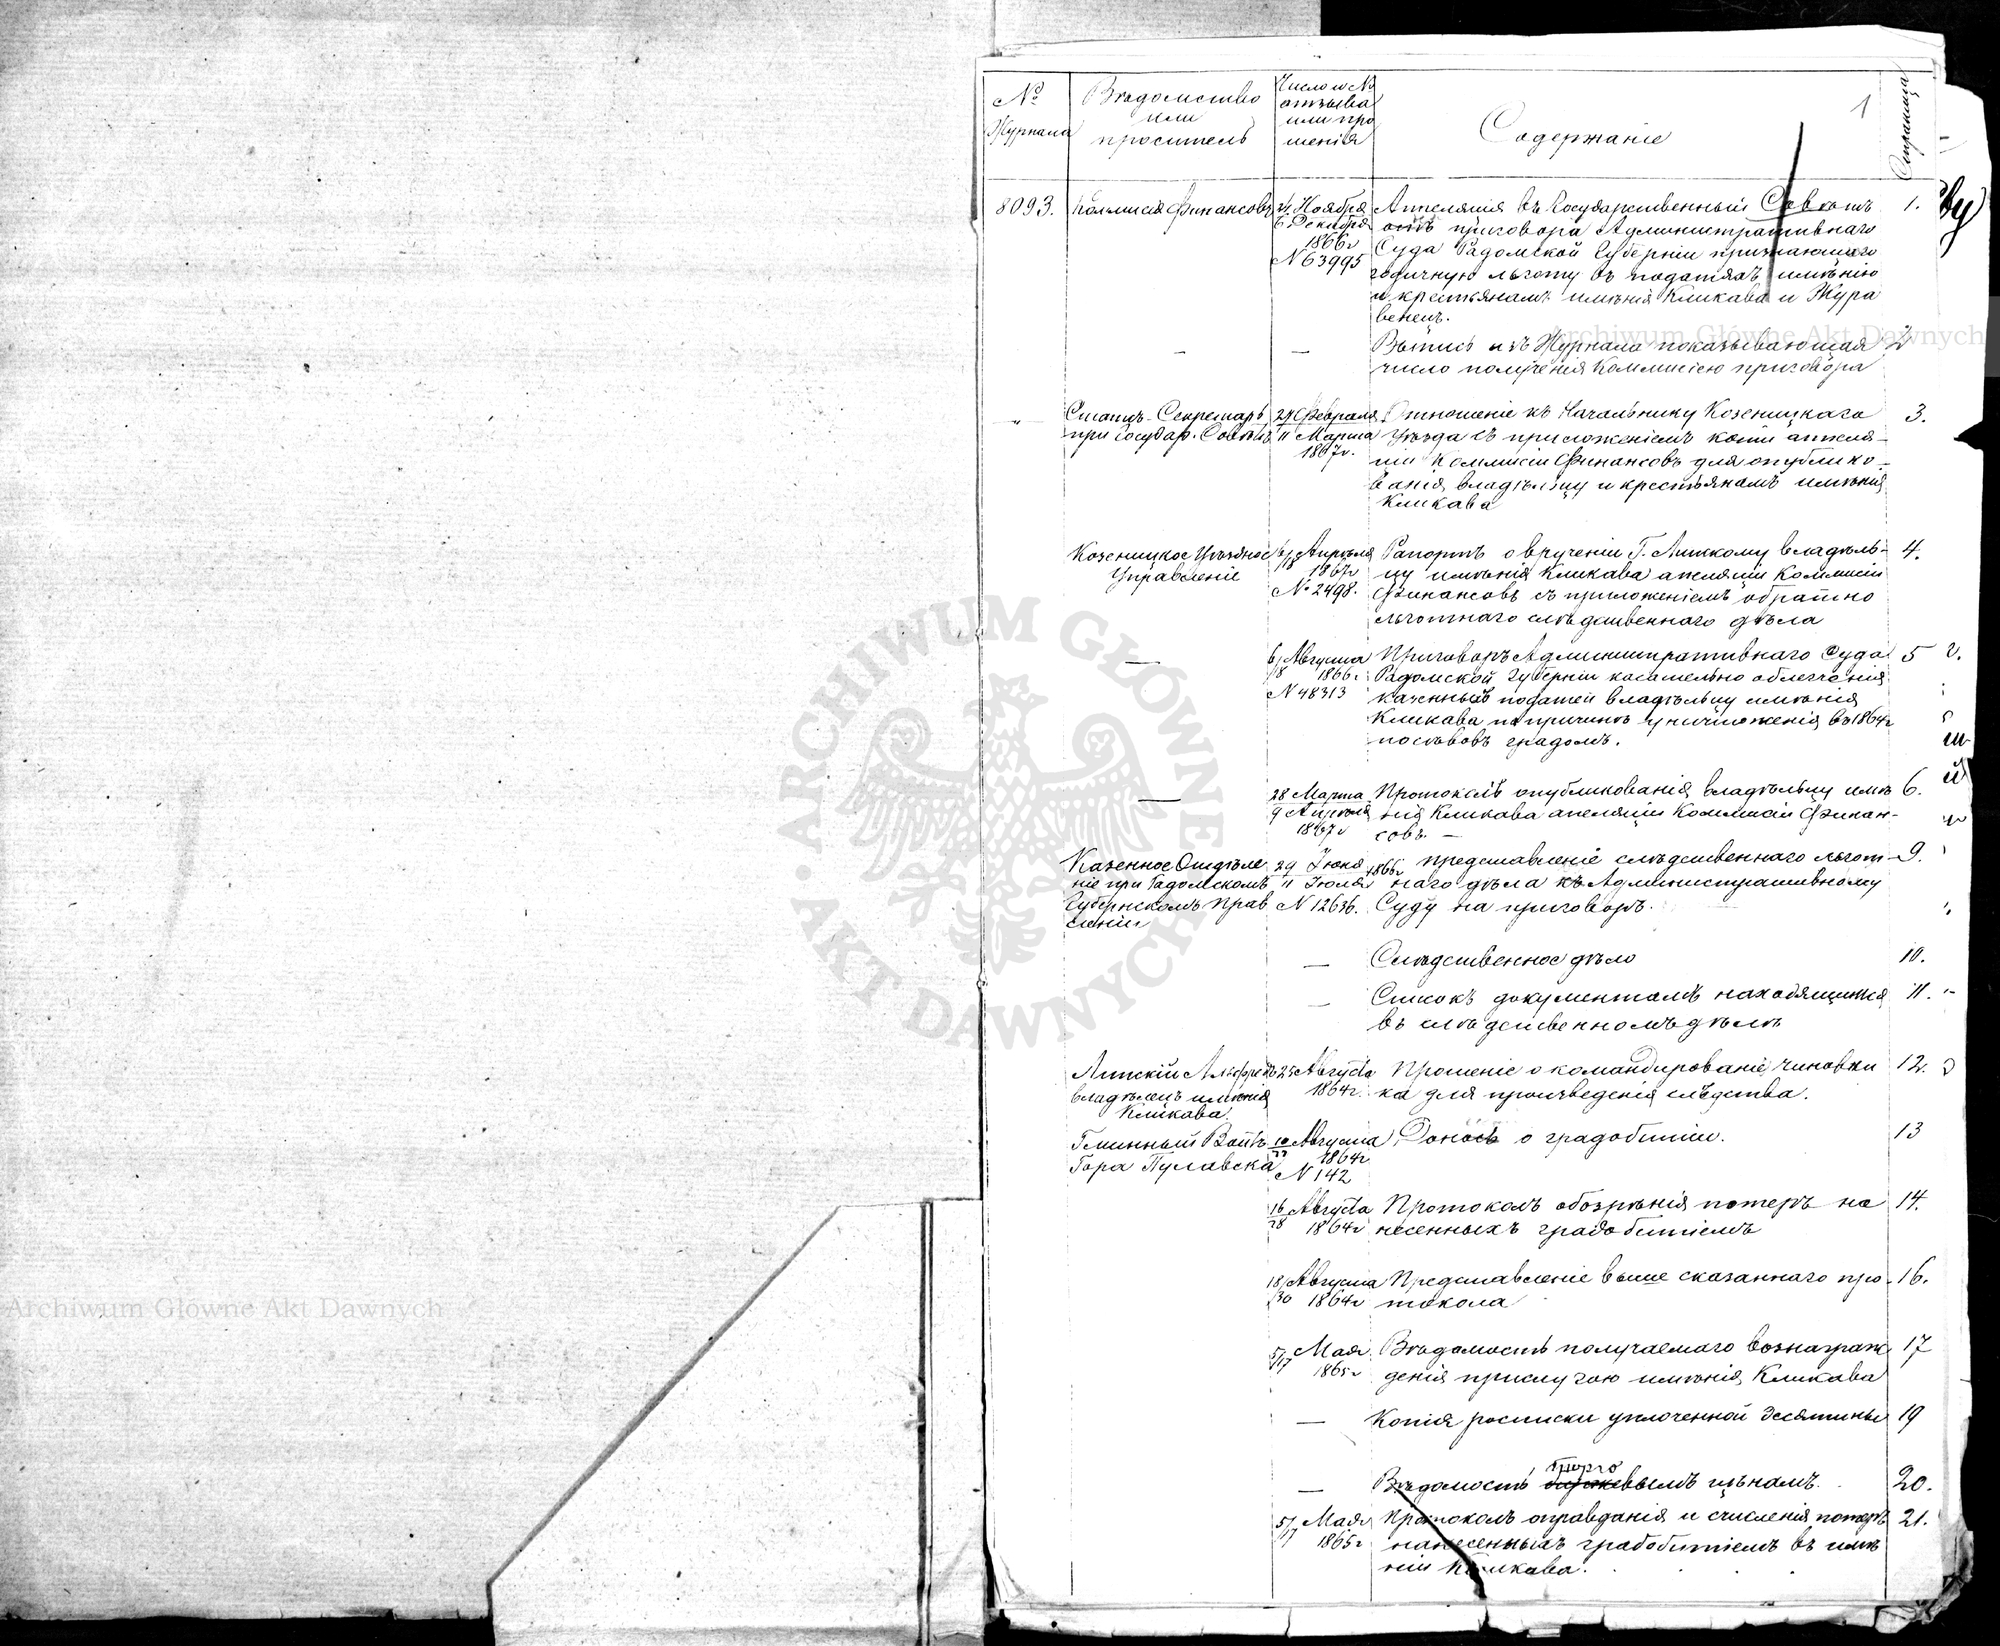 1
№ Журнала
Вѣдомство или проситель
Число и № отзыва или прошенія
Содержаніе
Страница
8093.
Коммисія Финансовъ
24 Ноября
6 Декабря
1866 г
N 63995
Аппеляція въ Государственный Совѣтъ
отъ приговора Административнаго
Суда Радомской Губерніи признающаго
годичную льготу въ податяхъ имѣнію
и крестьянамъ имѣнія Кликава и Жура
венец.
1.
—
—
Выпись изъ Журнала показывающая
число полученія Коммисіею приговора
2
"
Статсъ-Секретарь
при Государ. Совѣтѣ
27 Февраля
11 Марта
1867 г.
Отношеніе къ Начальнику Козеницкаго
Уѣзда съ приложеніемъ копіи аппеля–
ціи Коммисіи Финансовъ для опублико–
ванія владѣльцу и крестьянамъ имѣнія
Кликава
3.
Козеницкое Уѣздное
Управленіе
6/18 Апрѣля
1867 г
№ 2498.
Рапортъ о врученіи Г. Липскому владѣль–
цу имѣнія Кликава апеляціи Коммисіи
Финансовъ съ приложеніемъ обратно
льготнаго слѣдственнаго дѣла
4.
—
6/18 Августа
1866 г.
N 48313
Приговоръ Административнаго Суда
Радомской Губерніи касательно облегченія
казенныхъ податей владѣльцу имѣнія
Кликава по причинѣ уничтоженія въ 1864 г
посѣвовъ градомъ.
5
—
28 Марта
9 Апрѣля
1867 г
Протоколъ опубликованія владѣльцу имѣ
нія Кликава апеляціи Коммисіи Финан–
совъ. —
6.
Казенное Отдѣле
ніе при Радомскомъ
Губернскомъ Прав
леніи
29 Іюня
11 Іюля
1866 г
N 12636.
Представленіе слѣдственнаго льгот–
наго дѣла къ Административному
Суду на приговоръ.
9.
—
Слѣдственное дѣло
10.
—
Списокъ документамъ находящимся
въ слѣдственномъ дѣлѣ
11.
Липскій Альфредъ
владѣлецъ имѣнія
Кликава.
25 Августа
1864 г.
Прошеніе о командированіе чиновни
ка для произведенія слѣдства.
12.
Гминный Войтъ
Гора Пулавска
10/22 Августа
1864 г
N 142
Доносъ о градобитіи.
13
16/28 Августа
1864 г
Протоколъ обозрѣнія потерь на
несенныхъ градобитіемъ
14.
18/30 Августа
1864 г
Представленіе выше сказаннаго про–
токола
16.
5/17 Мая
1865 г
Вѣдомость получаемаго вознаграж
денія прислугою имѣнія Кликава
17
—
Копія росписки уплоченной десятины
19
—
Вѣдомость торговымъ цѣнамъ.
20.
5/17 Мая
1865 г
Протоколъ оправданія и счисленія потерь
нанесенныхъ градобитіемъ въ имѣ
ніи Кликава.
21.
Archiwum Główne Akt Dawnych
Archiwum Główne Akt Dawnych
ARCHIWUM GŁÓWNE
AKT DAWNYCH